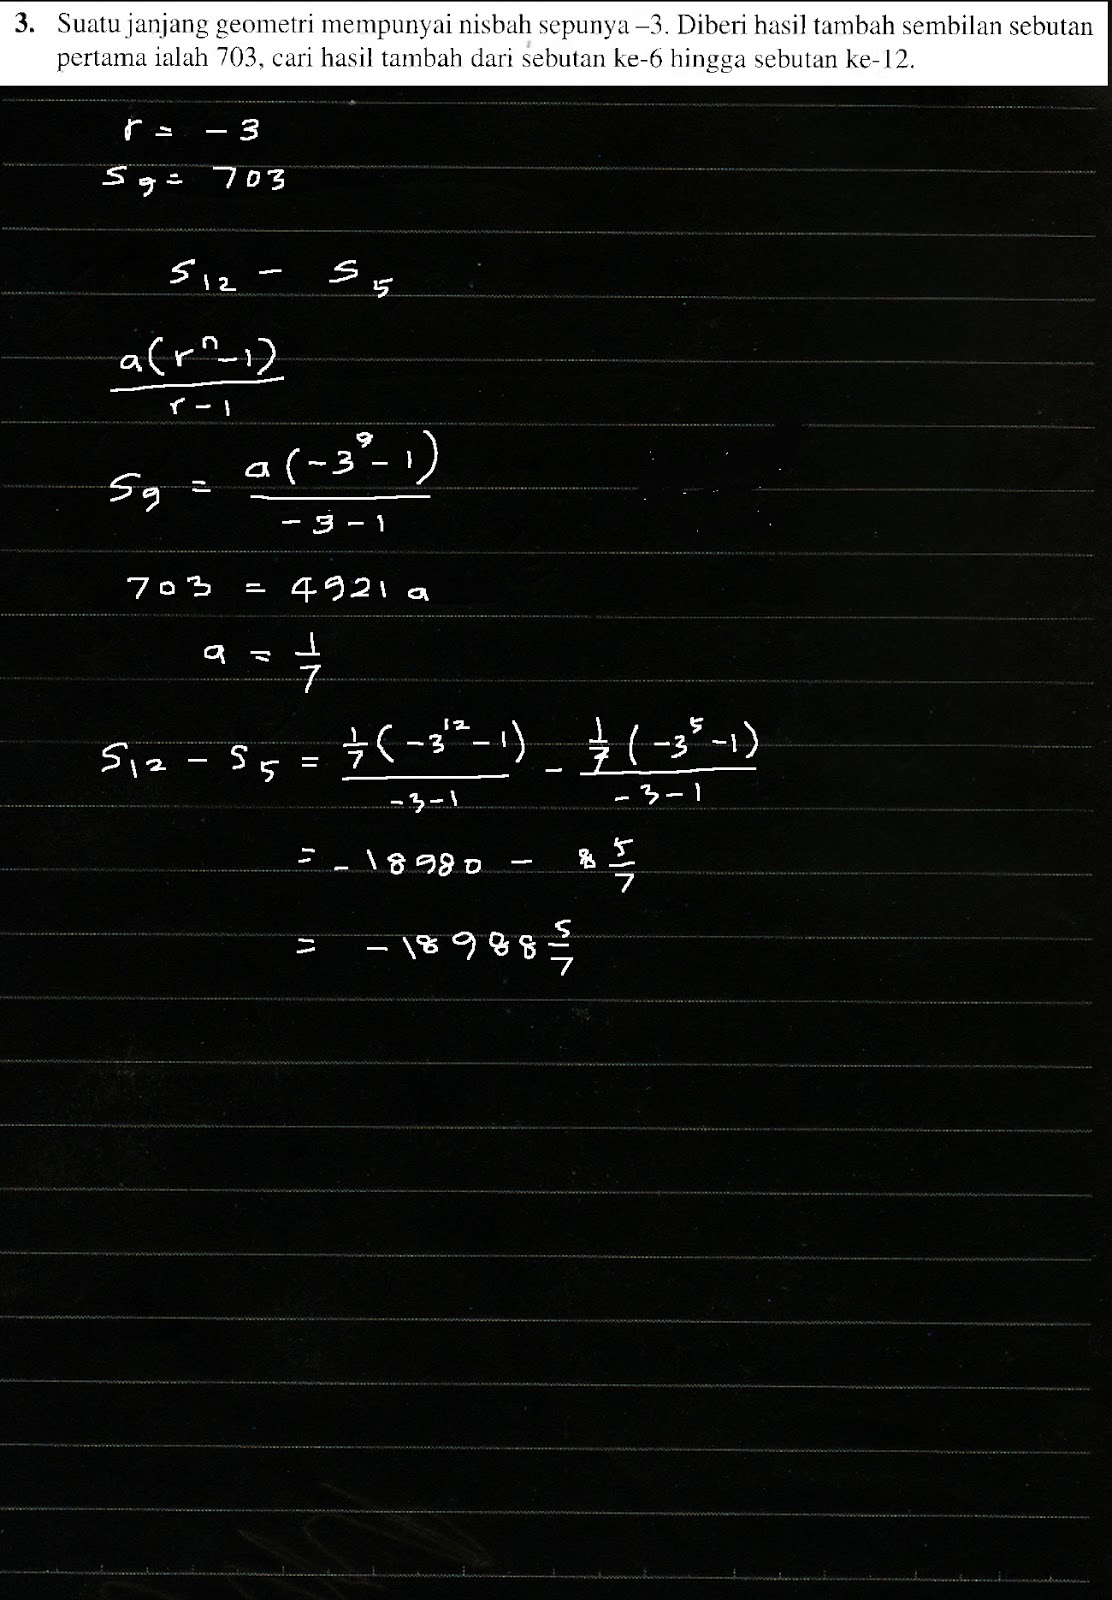 3. Suatu janjang geometri mempunyai nisbah sepunya –3. Diberi hasil tambah sembilan sebutan
pertama ialah 703, cari hasil tambah dari sebutan ke-6 hingga sebutan ke-12.
r = -3
S₉ = 703
S₁₂ - S₅
a(rⁿ-1)
r-1
S₉ = a(-3⁹-1)
-3-1
703 = 4921a
a = 1/7
S₁₂ - S₅ = 1/7(-3¹²-1) - 1/7(-3⁵-1)
-3-1 -3-1
= -18980 - 8 5/7
= -18988 5/7